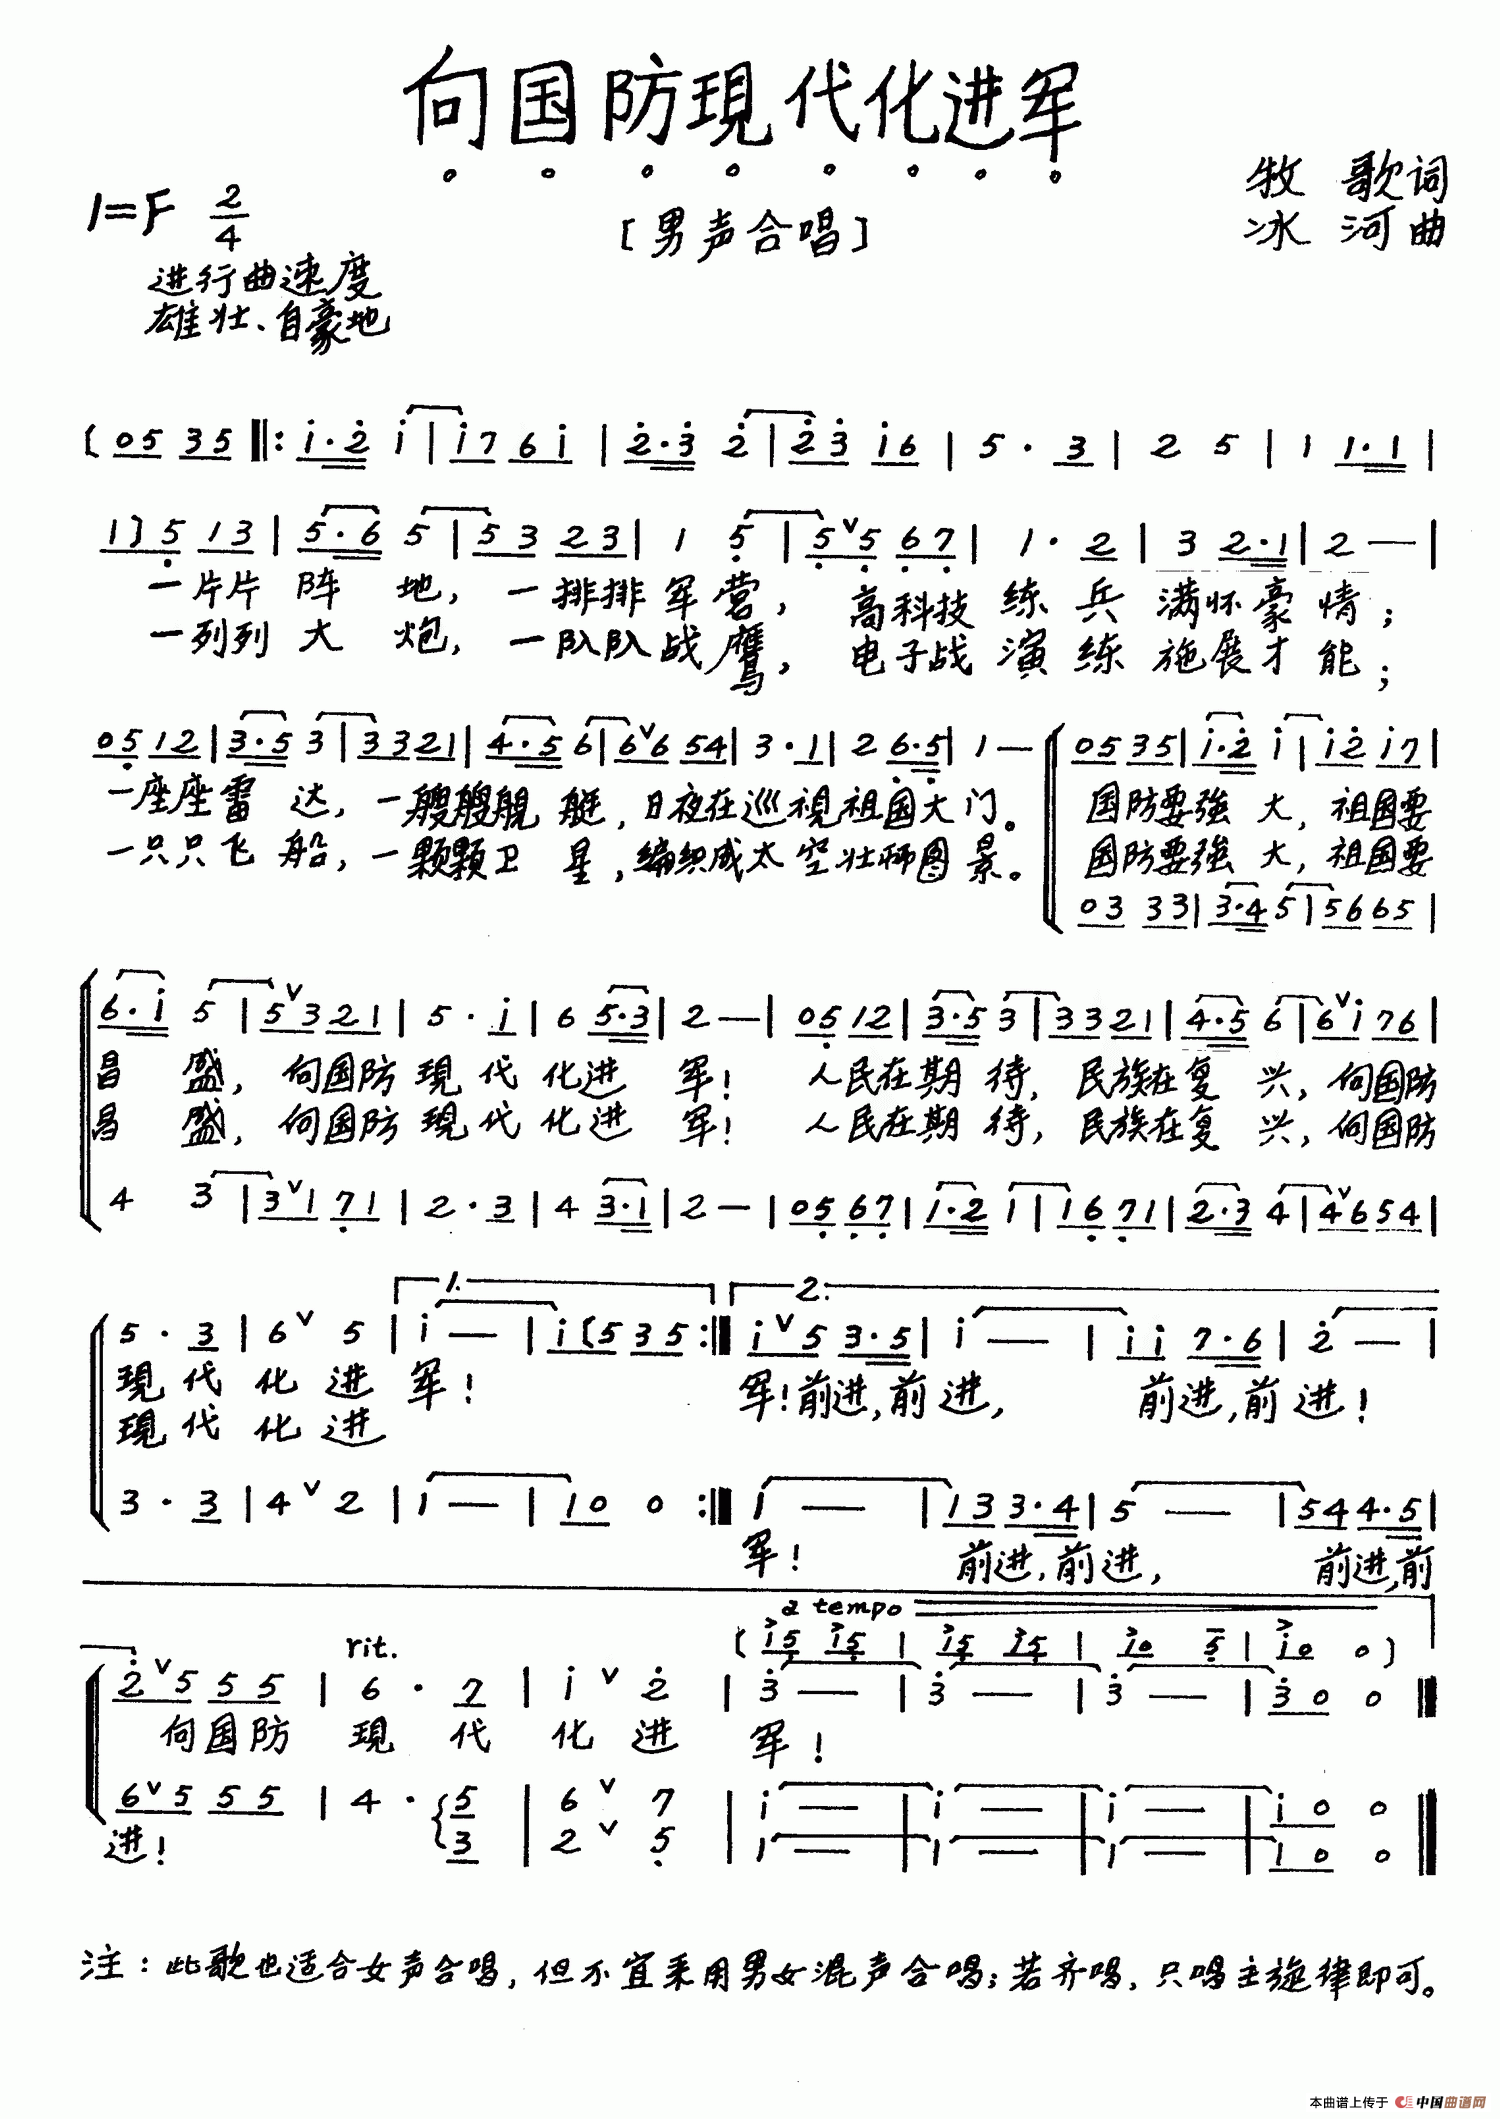 向国防現代化进军
牧 歌词
1=F 2/4
[男声合唱]
冰 河曲
进行曲速度
雄壮、自豪地
(05 35 ‖: i·2 i | i7 6i | 2·3 2 | 23 i6 | 5 · 3 | 2 5 | 1 1·1 |
1) 5 13 | 5·6 5 | 53 23 | 1 5 | 5∨5 67 | 1· 2 | 3 2·1 | 2 — |
一片片 阵 地，一排排 军 营， 高科技 练 兵 满怀豪 情；
一列列 大 炮，一队队战 鹰， 电子战 演 练 施展才 能；
05 12 | 3·5 3 | 33 21 | 4·5 6 | 6∨6 54 | 3·1 | 2 6·5 | 1 — | 05 35 | i·2 i | i2 i7 |
一座座雷 达，一艘艘舰 艇，日夜在巡 视祖国大门。 国防要強 大，祖国要
一只只飞 船，一颗颗卫 星，编织成太 空壮丽图 景。 国防要強 大，祖国要
03 33 | 3·4 5 | 56 65 |
6·i 5 | 5∨3 21 | 5 · i | 6 5·3 | 2 — | 05 12 | 3·5 3 | 33 21 | 4·5 6 | 6∨i 76 |
昌 盛，向国防 現 代 化进 军！ 人民在期 待，民族在复 兴，向国防
昌 盛，向国防 現 代 化进 军！ 人民在期 待，民族在复 兴，向国防
4 3 | 3∨1 71 | 2 · 3 | 4 3·1 | 2 — | 05 67 | 1·2 1 | 16 71 | 2·3 4 | 4∨6 54 |
1. 2.
5 · 3 | 6∨ 5 | i — | i (5 35 :‖ i∨5 3·5 | i — | i i 7·6 | 2 — |
現 代 化 进 军！ 军！前进，前 进， 前进，前 进！
現 代 化 进
3 · 3 | 4∨ 2 | 1 — | 10 0 :‖ 1 — | 13 3·4 | 5 — | 54 4·5 |
军！ 前进，前 进， 前进，前
a tempo
rit.
( i5 i5 | i5 i5 | i0 5 | i0 0 )
2∨5 55 | 6 · 7 | i ∨ 2 | 3 — | 3 — | 3 — | 30 0 ‖
向国防 現 代 化 进 军！
6∨5 55 | 4 · 5 | 6 ∨ 7 | i — | i — | i — | i0 0 ‖
3 | 2 ∨ 5 | 1 — | 1 — | 1 — | 10 0
进！
注：此歌也适合女声合唱，但不宜采用男女混声合唱；若齐唱，只唱主旋律即可。
本曲谱上传于 中国曲谱网